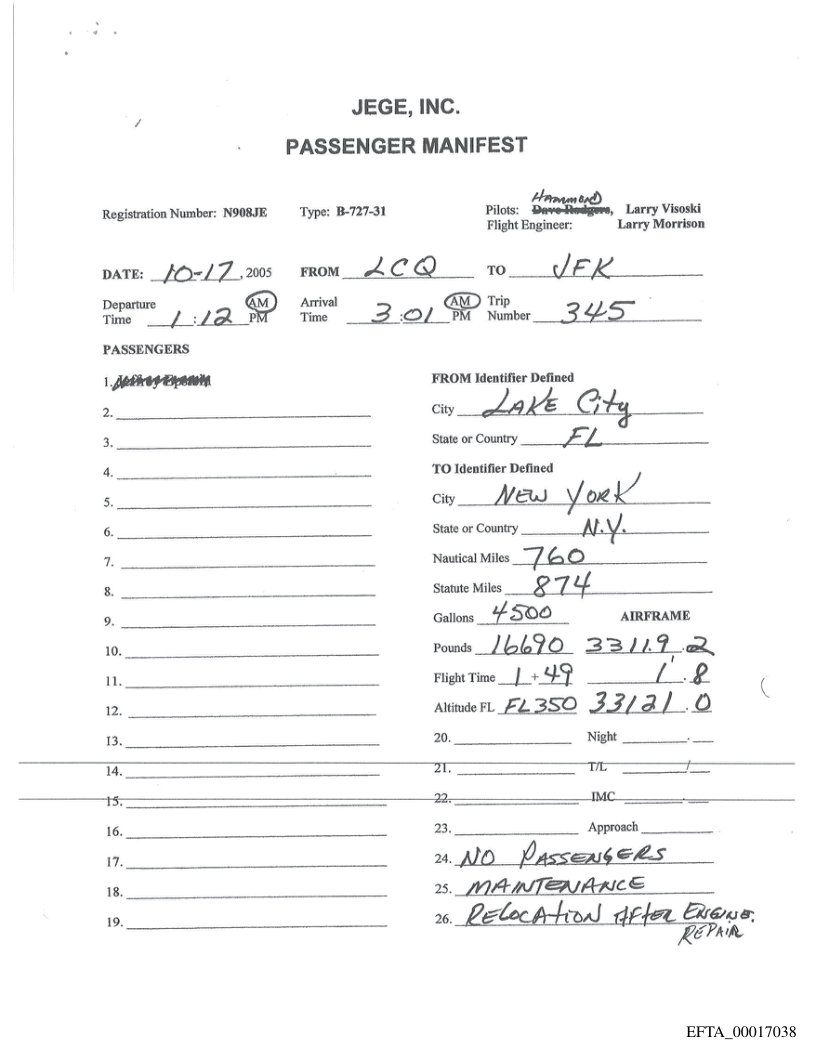 JEGE, INC.
PASSENGER MANIFEST
HAMMOND
Registration Number: N908JE Type: B-727-31 Pilots: Dave Rodgers, Larry Visoski
Flight Engineer: Larry Morrison
DATE: 10-17, 2005 FROM LCQ TO JFK
Departure Time 1:12 AM PM Arrival Time 3:01 AM PM Trip Number 345
PASSENGERS
1.
2.
3.
4.
5.
6.
7.
8.
9.
10.
11.
12.
13.
14.
15.
16.
17.
18.
19.
FROM Identifier Defined
City LAKE City
State or Country FL
TO Identifier Defined
City NEW YORK
State or Country N.Y.
Nautical Miles 760
Statute Miles 874
Gallons 4500 AIRFRAME
Pounds 16690 33119.2
Flight Time 1 + 49 1.8
Altitude FL FL350 33121.0
20. Night .
21. T/L /
22. IMC .
23. Approach
24. NO PASSENGERS
25. MAINTENANCE
26. RELOCATION AFTER ENGINE.
REPAIR
EFTA_00017038